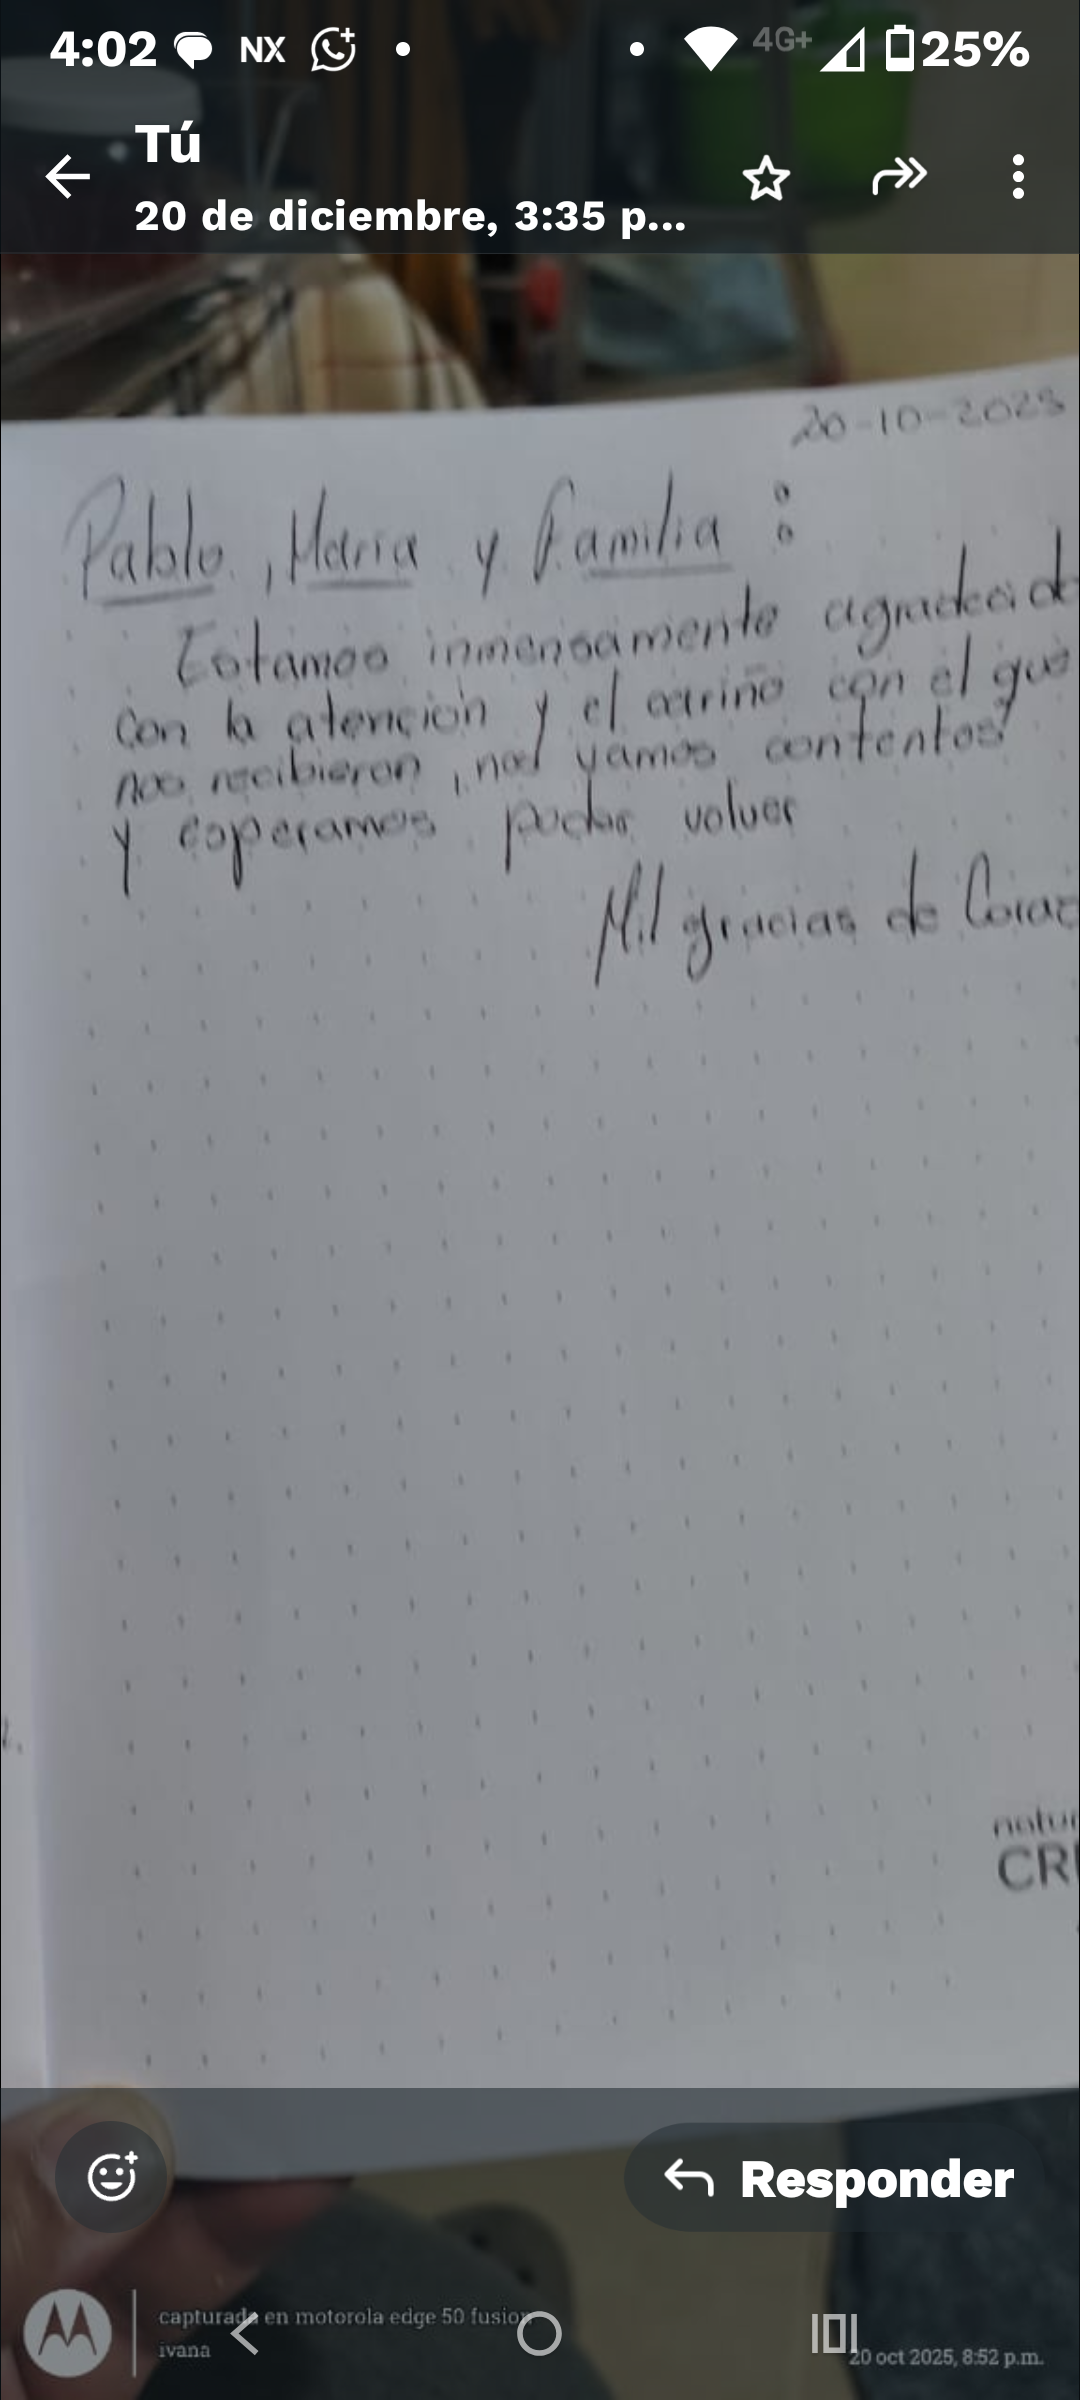 4:02 NX 4G+ 25%
Tú
20 de diciembre, 3:35 p...
20-10-2025
Pablo, Maria y Familia :
Estamos inmensamente agradecid
con la atención y el cariño con el que
nos recibieron, nos vamos contentos
y esperamos poder volver
Mil gracias de Coraz
natur
CRE
Responder
capturada en motorola edge 50 fusion
ivana
20 oct 2025, 8:52 p.m.